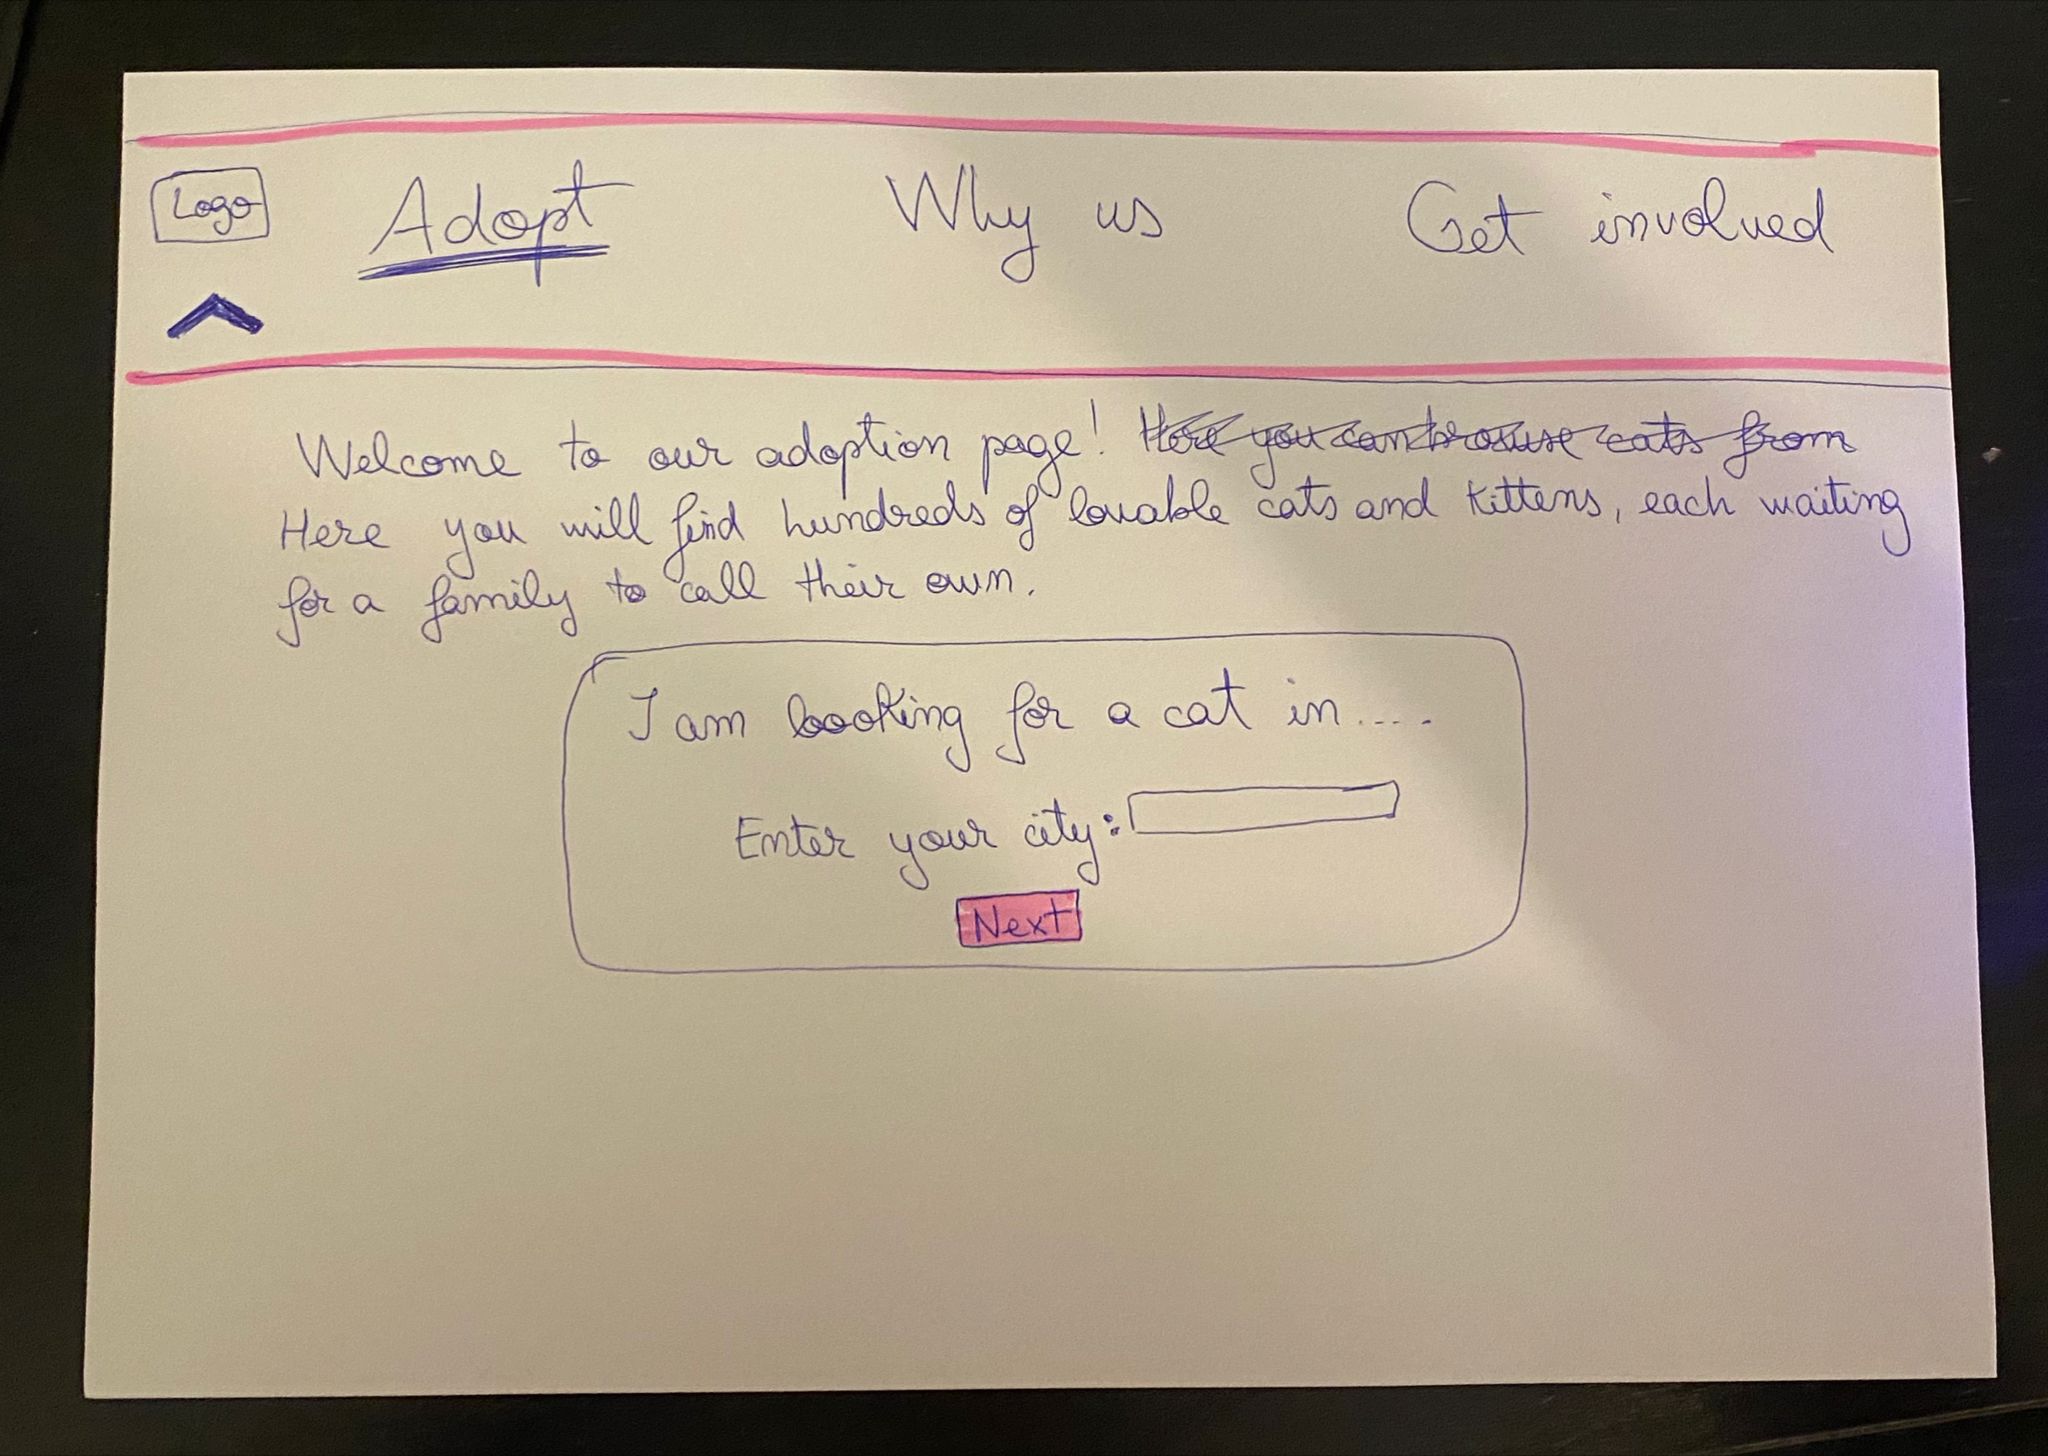 Logo Adopt Why us Get involved
Welcome to our adoption page! Here you can browse cats from
Here you will find hundreds of lovable cats and kittens, each waiting
for a family to call their own.
I am looking for a cat in.....
Enter your city:
Next